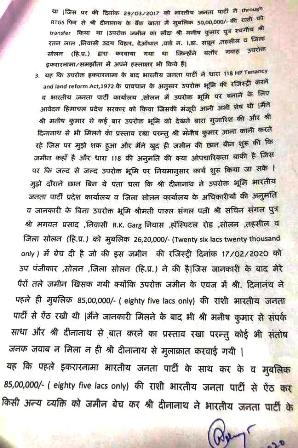 था (जिस पर की दिनांक 29/03/2017 को भारतीय जनता पार्टी ने through
RTGS फिर से श्री दीनानाथ के बैंक खाता में मुबलिक 50,00,000/- की राशी को
transfer किया था (उपरोक्त जमीन का सौदा श्री मनीष कुमार पुत्र स्वर्गीय श्री
रतन लाल ,निवासी उदय विहार, देओंघाट ,डाक घर , तहसील व जिला
सोलन (हि.प्र.) द्वारा करवाया गया था जिन्होंने बतौर गवाह उपरोक्त
इकरारनामा/समझौता में अपने हस्ताक्षर भी किये है)
3. यह कि उपरोक्त इकरारनामा के बाद भारतीय जनता पार्टी ने धारा 118 HP Tenancy
and land reform Act,1972 के प्रावधान के अनुसार उपरोक्त भूमि की रजिस्ट्री करने
व भारतीय जनता पार्टी कार्यालय ,सोलन में उपरोक्त भूमि पर बनाने के लिए
आवेदन हिमाचल प्रदेश सरकार को किया जिसकी मंजूरी आनी अभी शेष थी (मैंने
श्री मनीष कुमार से कई बार उपरोक्त भूमि को देखने बारा गुजारिश की और श्री
दीनानाथ से भी मिलने का प्रस्ताव रखा परन्तु श्री मनीष कुमार आना कानी करते
रहे जिस पर मुझे शक हुआ और मैंने खुद ही जमीन की छान बीन शुरू की कि
जमीन कहाँ है और धारा 118 की अनुमति की क्या औपचारिकता बाकी है जिस
पर कि जल्द से जल्द उपरोक्त भूमि पर नियमानुसार कार्य शुरू किया जा सके |
मुझे दौराने छान बिन ये पता चला कि श्री दीनानाथ ने उपरोक्त भूमि भारतीय
जनता पार्टी प्रदेश कार्यालय व जिला सोलन कार्यालय के अधिकारीयों की अनुमति
व जानकारी के बिना उपरोक्त भूमि श्रीमती पारुल संगल पत्नी श्री सचिन संगल पुत्र
श्री भगवत प्रसाद ,निवासी R.K. Garg निवास ,हॉस्पिटल रोड ,सोलन ,तहसील व
जिला सोलन (हि.प्र.) को मुबलिक 26,20,000/- (Twenty six lacs twenty thousand
only ) में बेच दी है जो की इस जमीन की रजिस्ट्री दिनांक 17/02/2020 को
उप पंजीकार ,सोलन ,जिला सोलन (हि.प्र.) ने की है|जिस जानकारी के बाद मेरे
पैरों तले जमीन खिसक गयी क्योंकि उपरोक्त जमीन के एवज में श्री. दिनानांथ ने
पहले ही मुबलिक 85,00,000/- ( eighty five lacs only) की राशी भारतीय जनता
पार्टी से ऐंठ रखी थी |मैंने जानकारी मिलने के बाद भी श्री मनीष कुमार से संपर्क
साधा और श्री दीनानाथ से बात करने का प्रस्ताव रखा परन्तु कोई भी संतोष
जनक जवाब न मिला न ही श्री दीनानाथ से मुलाक़ात करवाई गयी |
यह कि पहले इकरारनामा भारतीय जनता पार्टी के साथ कर के व मुबलिक
85,00,000/- ( eighty five lacs only) की राशी भारतीय जनता पार्टी से ऐंठ कर
किसी अन्य व्यक्ति को जमीन बेच कर श्री दीनानाथ ने भारतीय जनता पार्टी के